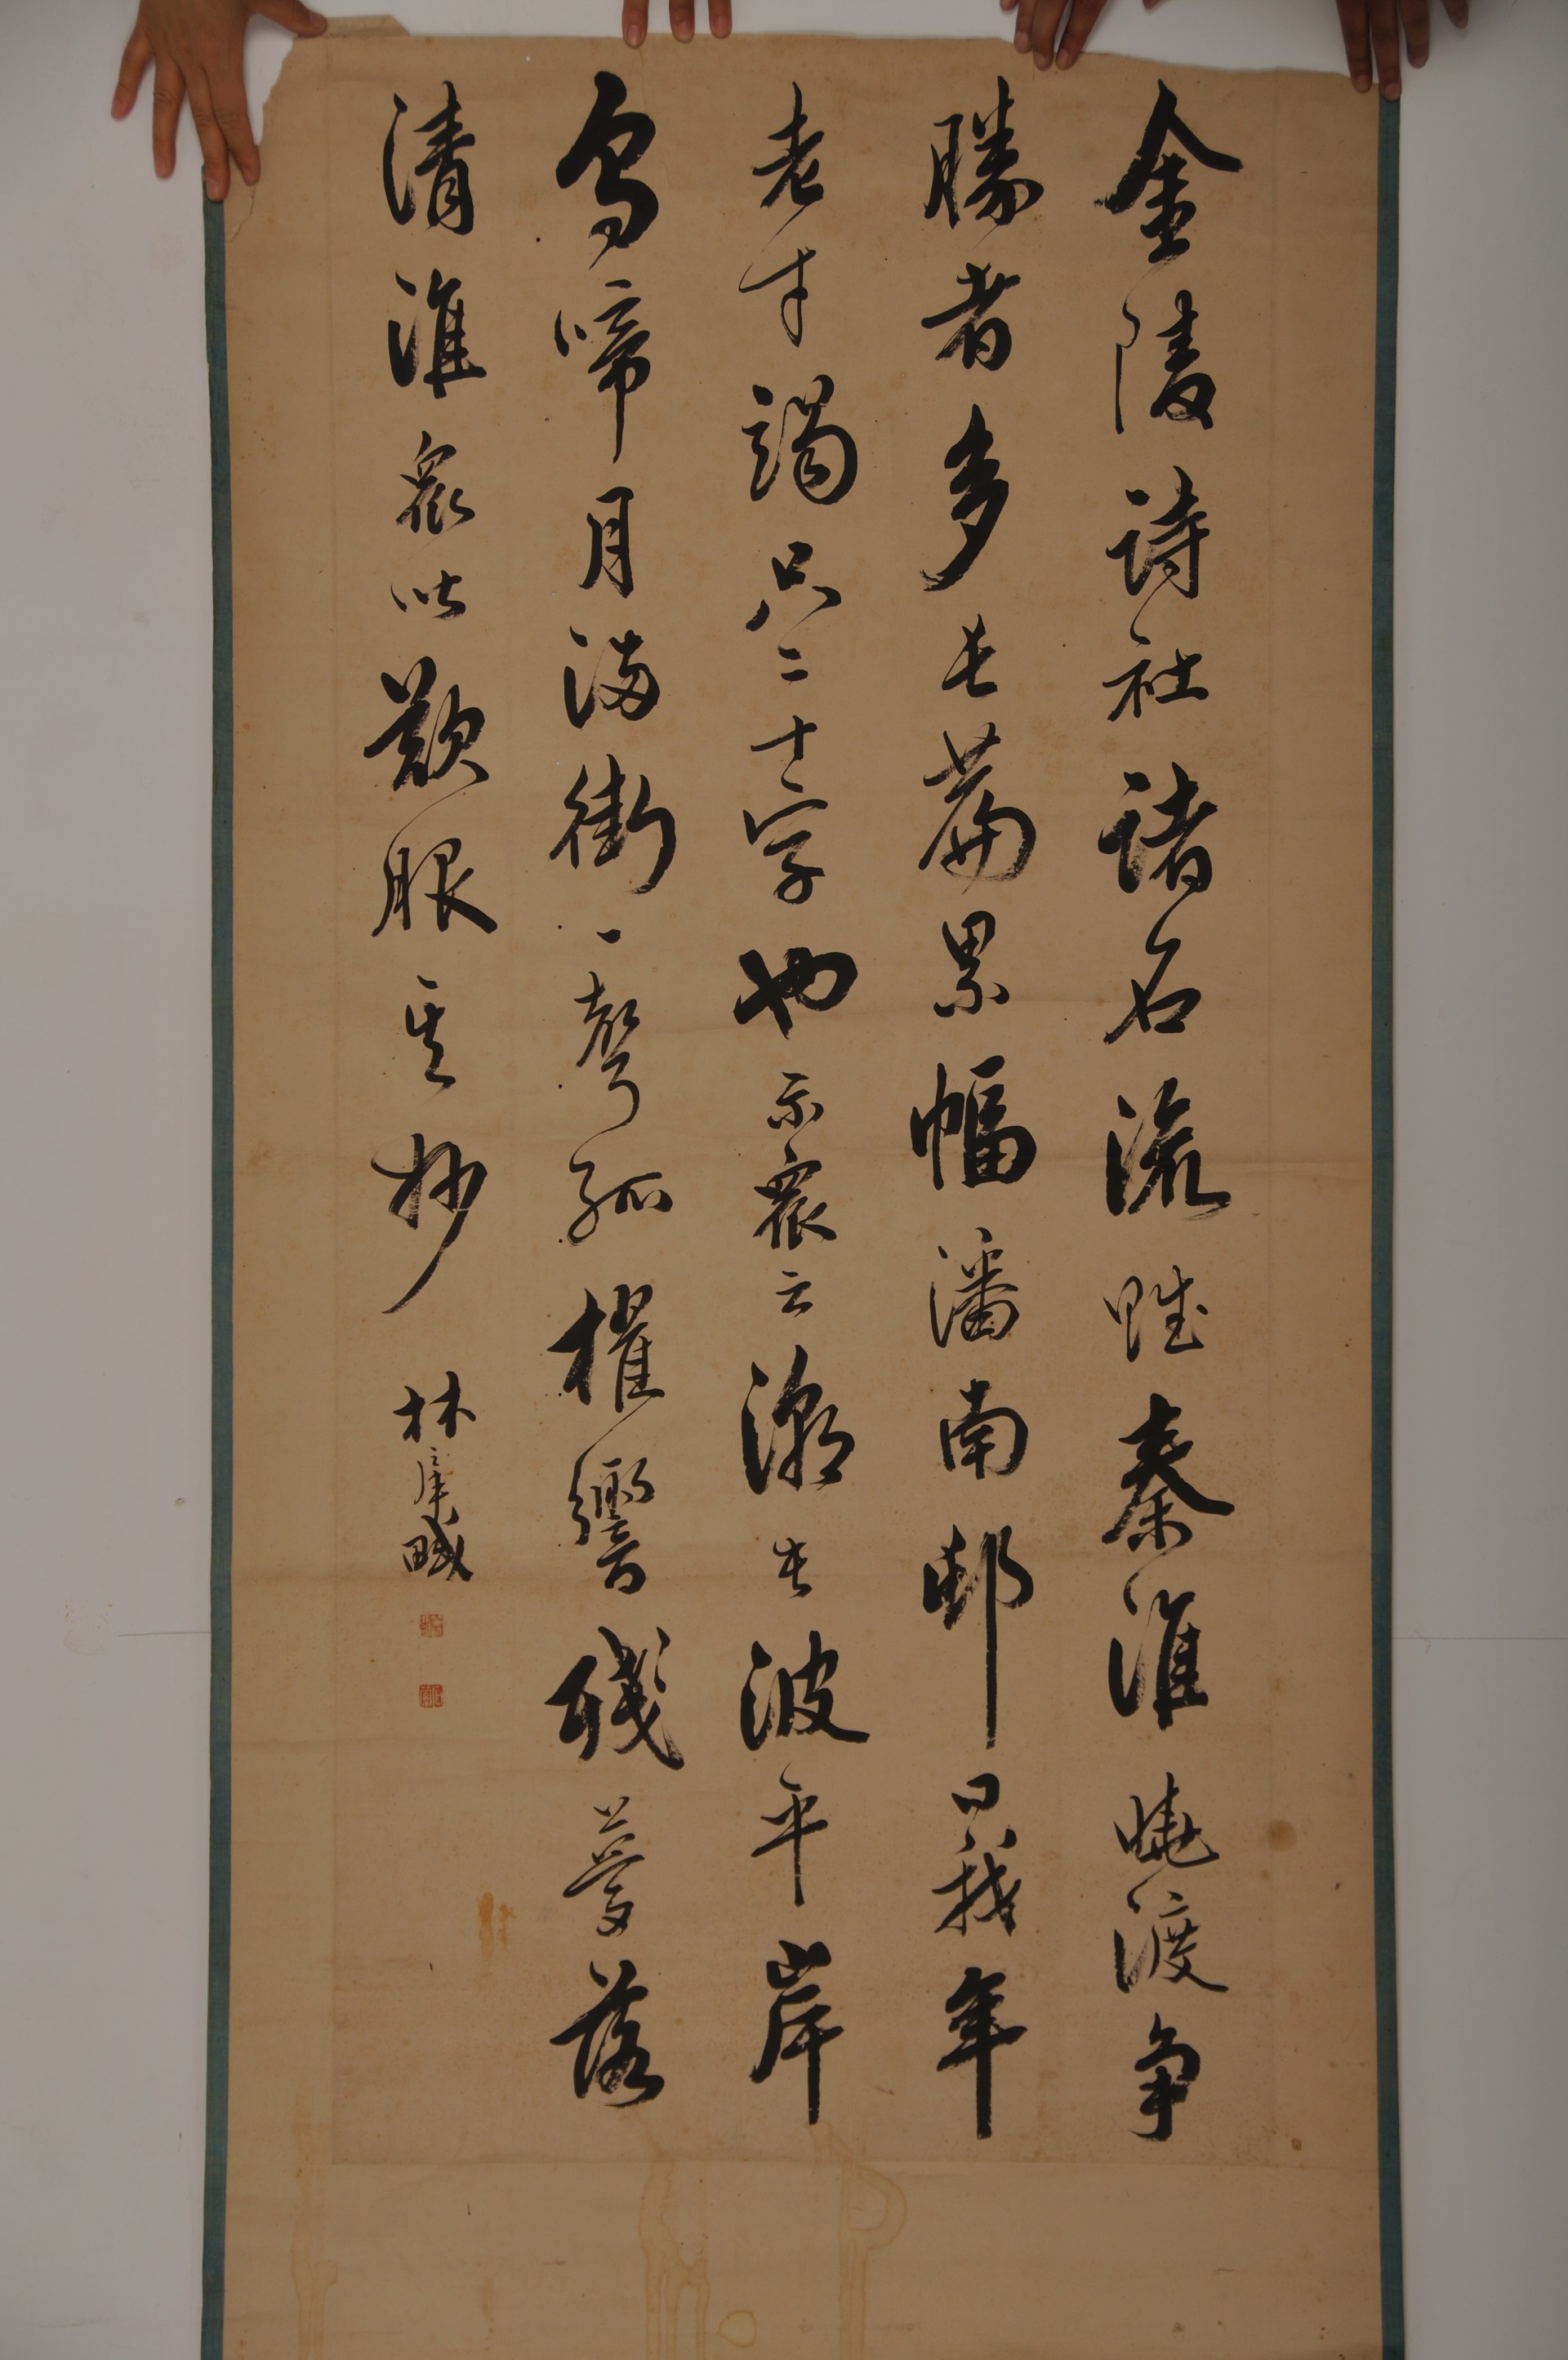 金陵詩社諸名流賦秦淮曉渡爭
勝者多長篇累幅潘南邨曰我年
老才竭只二十字也示衆云潮長波平岸
烏啼月滿街一聲孤櫂響殘夢落
清淮衆皆歎服其妙 林